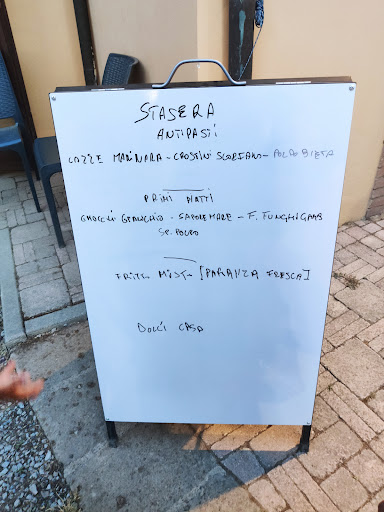 STASERA
ANTIPASTI
COZZE MARINARA - CROSTINI - POLPO BIETA
PRIMI PIATTI
GNOCCHI GRANCHIO - SAPORE MARE - F. FUNGHI GAMB
SP. POLPO
FRITTO MISTO [PARANZA FRESCA]
DOLCI CASA